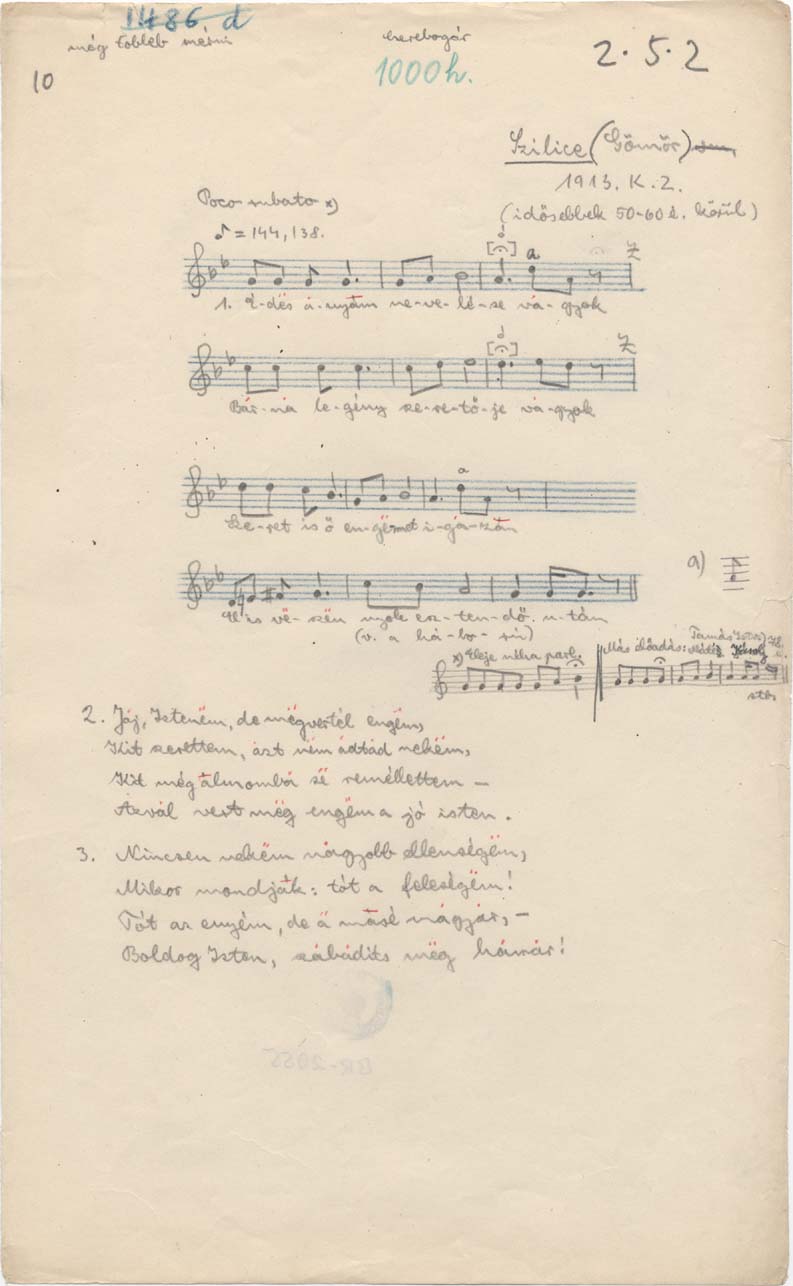 1486 d
még többeb mérni
cserebogár
1000h.
2.5.2
10
Szilice (Gömör)
1913. K.Z.
(idősebbek 50-60 é. körül)
Poco rubato x)
♪ = 144, 138.
a
Z
1. É-dës á-nyám ne-ve-lé-se vá-gyok
Z
Bár-ná le-gény sze-re-tő-je vá-gyok
a
Sze-ret is ő en-gëmet i-gá-zán
a)
El is vë-szën nyolc esz-ten-dő u-tán
(v. a há-bo-rú)
x) Eleje néha parl.
Más előadás:
Károly
stb.
2. Jáj, Istenëm, de mëgvertél engëm,
Kit szerettem, ázt nëm ádtád nekëm,
Kit még álmombá së remélletem –
Ázvál vert mëg engëm a jó isten.
3. Nincsen nekëm nágyobb ellenségëm,
Mikor mondják: tót a feleségëm!
Tót az enyém, de ä másé mágyár, –
Boldog Isten, szábádíts mëg hámár!
BR-2055